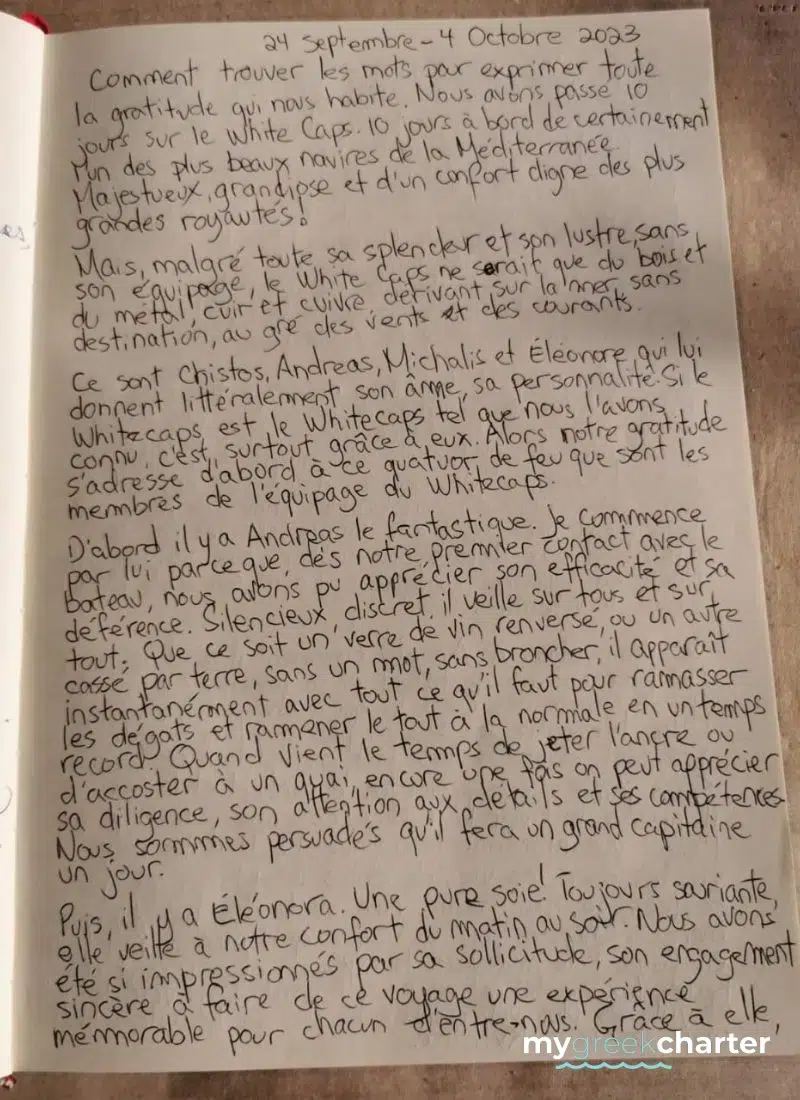 24 Septembre - 4 Octobre 2023
Comment trouver les mots pour exprimer toute
la gratitude qui nous habite. Nous avons passé 10
jours sur le White Caps. 10 jours à bord de certainement
l'un des plus beaux navires de la Méditerranée.
Majestueux, grandiose et d'un confort digne des plus
grandes royautés!
Mais, malgré toute sa splendeur et son lustre, sans
son équipage, le White Caps ne serait que du bois et
du métal, cuir et cuivre, dérivant sur la mer, sans
destination, au gré des vents et des courants.
Ce sont Chistos, Andreas, Michalis et Éléonore qui lui
donnent littéralement son âme, sa personnalité. Si le
Whitecaps est le Whitecaps tel que nous l'avons
connu, c'est surtout grâce à eux. Alors notre gratitude
s'adresse d'abord à ce quatuor de feu que sont les
membres de l'équipage du Whitecaps.
D'abord il y a Andreas le fantastique. Je commence
par lui parce que, dès notre premier contact avec le
bateau, nous avons pu apprécier son efficacité et sa
déférence. Silencieux, discret, il veille sur tous et sur
tout. Que ce soit un verre de vin renversé, ou un autre
cassé par terre, sans un mot, sans broncher, il apparaît
instantanément avec tout ce qu'il faut pour ramasser
les dégats et ramener le tout à la normale en un temps
record. Quand vient le temps de jeter l'ancre ou
d'accoster à un quai, encore une fois on peut apprécier
sa diligence, son attention aux détails et ses compétences.
Nous sommes persuadés qu'il fera un grand capitaine
un jour.
Puis, il y a Éléonora. Une pure soie! Toujours souriante,
elle veille à notre confort du matin au soir. Nous avons
été si impressionnés par sa sollicitude, son engagement
sincère à faire de ce voyage une expérience
mémorable pour chacun d'entre-nous. Grâce à elle,
mygreekcharter